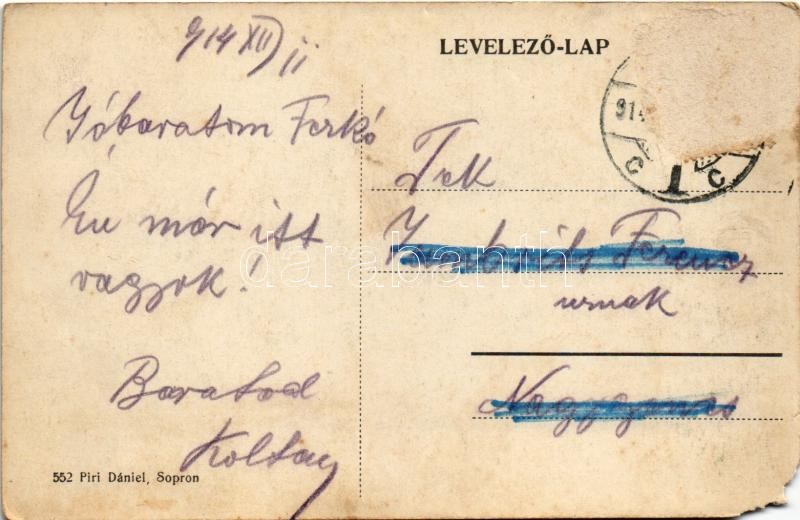 914 XII/11
LEVELEZŐ-LAP
914
C 1 C
Jóbaratom Ferkó
Én már itt
vagyok!
Baratod
Koltay
Tek
Ferencz
urnak
552 Piri Dániel, Sopron
darabanth